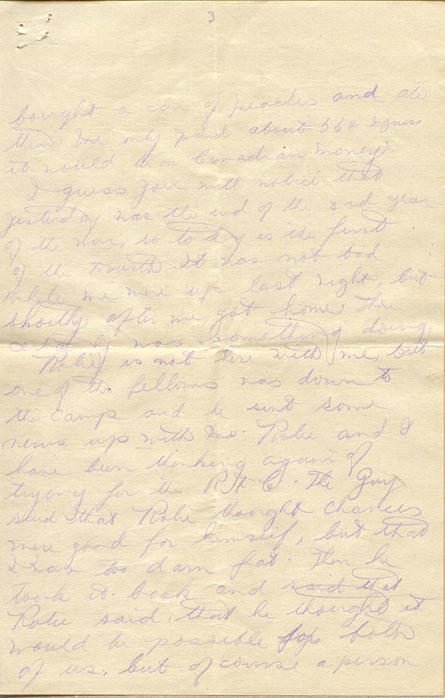 3
bought a can of peaches and ate
them. We only paid about 36¢ I guess
it would be in Canadian money.
I guess you will notice that
yesterday was the end of the 3rd year
of the war, so to day is the first
of the fourth. It was not bad
while we were up last night, but
shortly after we got home there
was something doing.
Robie is not here with me, but
one of the fellows was down to
the camp and he sent some
news up with him. Robie and I
have been thinking again of
trying for the R.F.C. The Guy
said that Robie thought chances
were good for himself, but that
I was too darn fat. Then he
took it back and said that
Robie said that he thought it
would be possible for both
of us, but of course a person